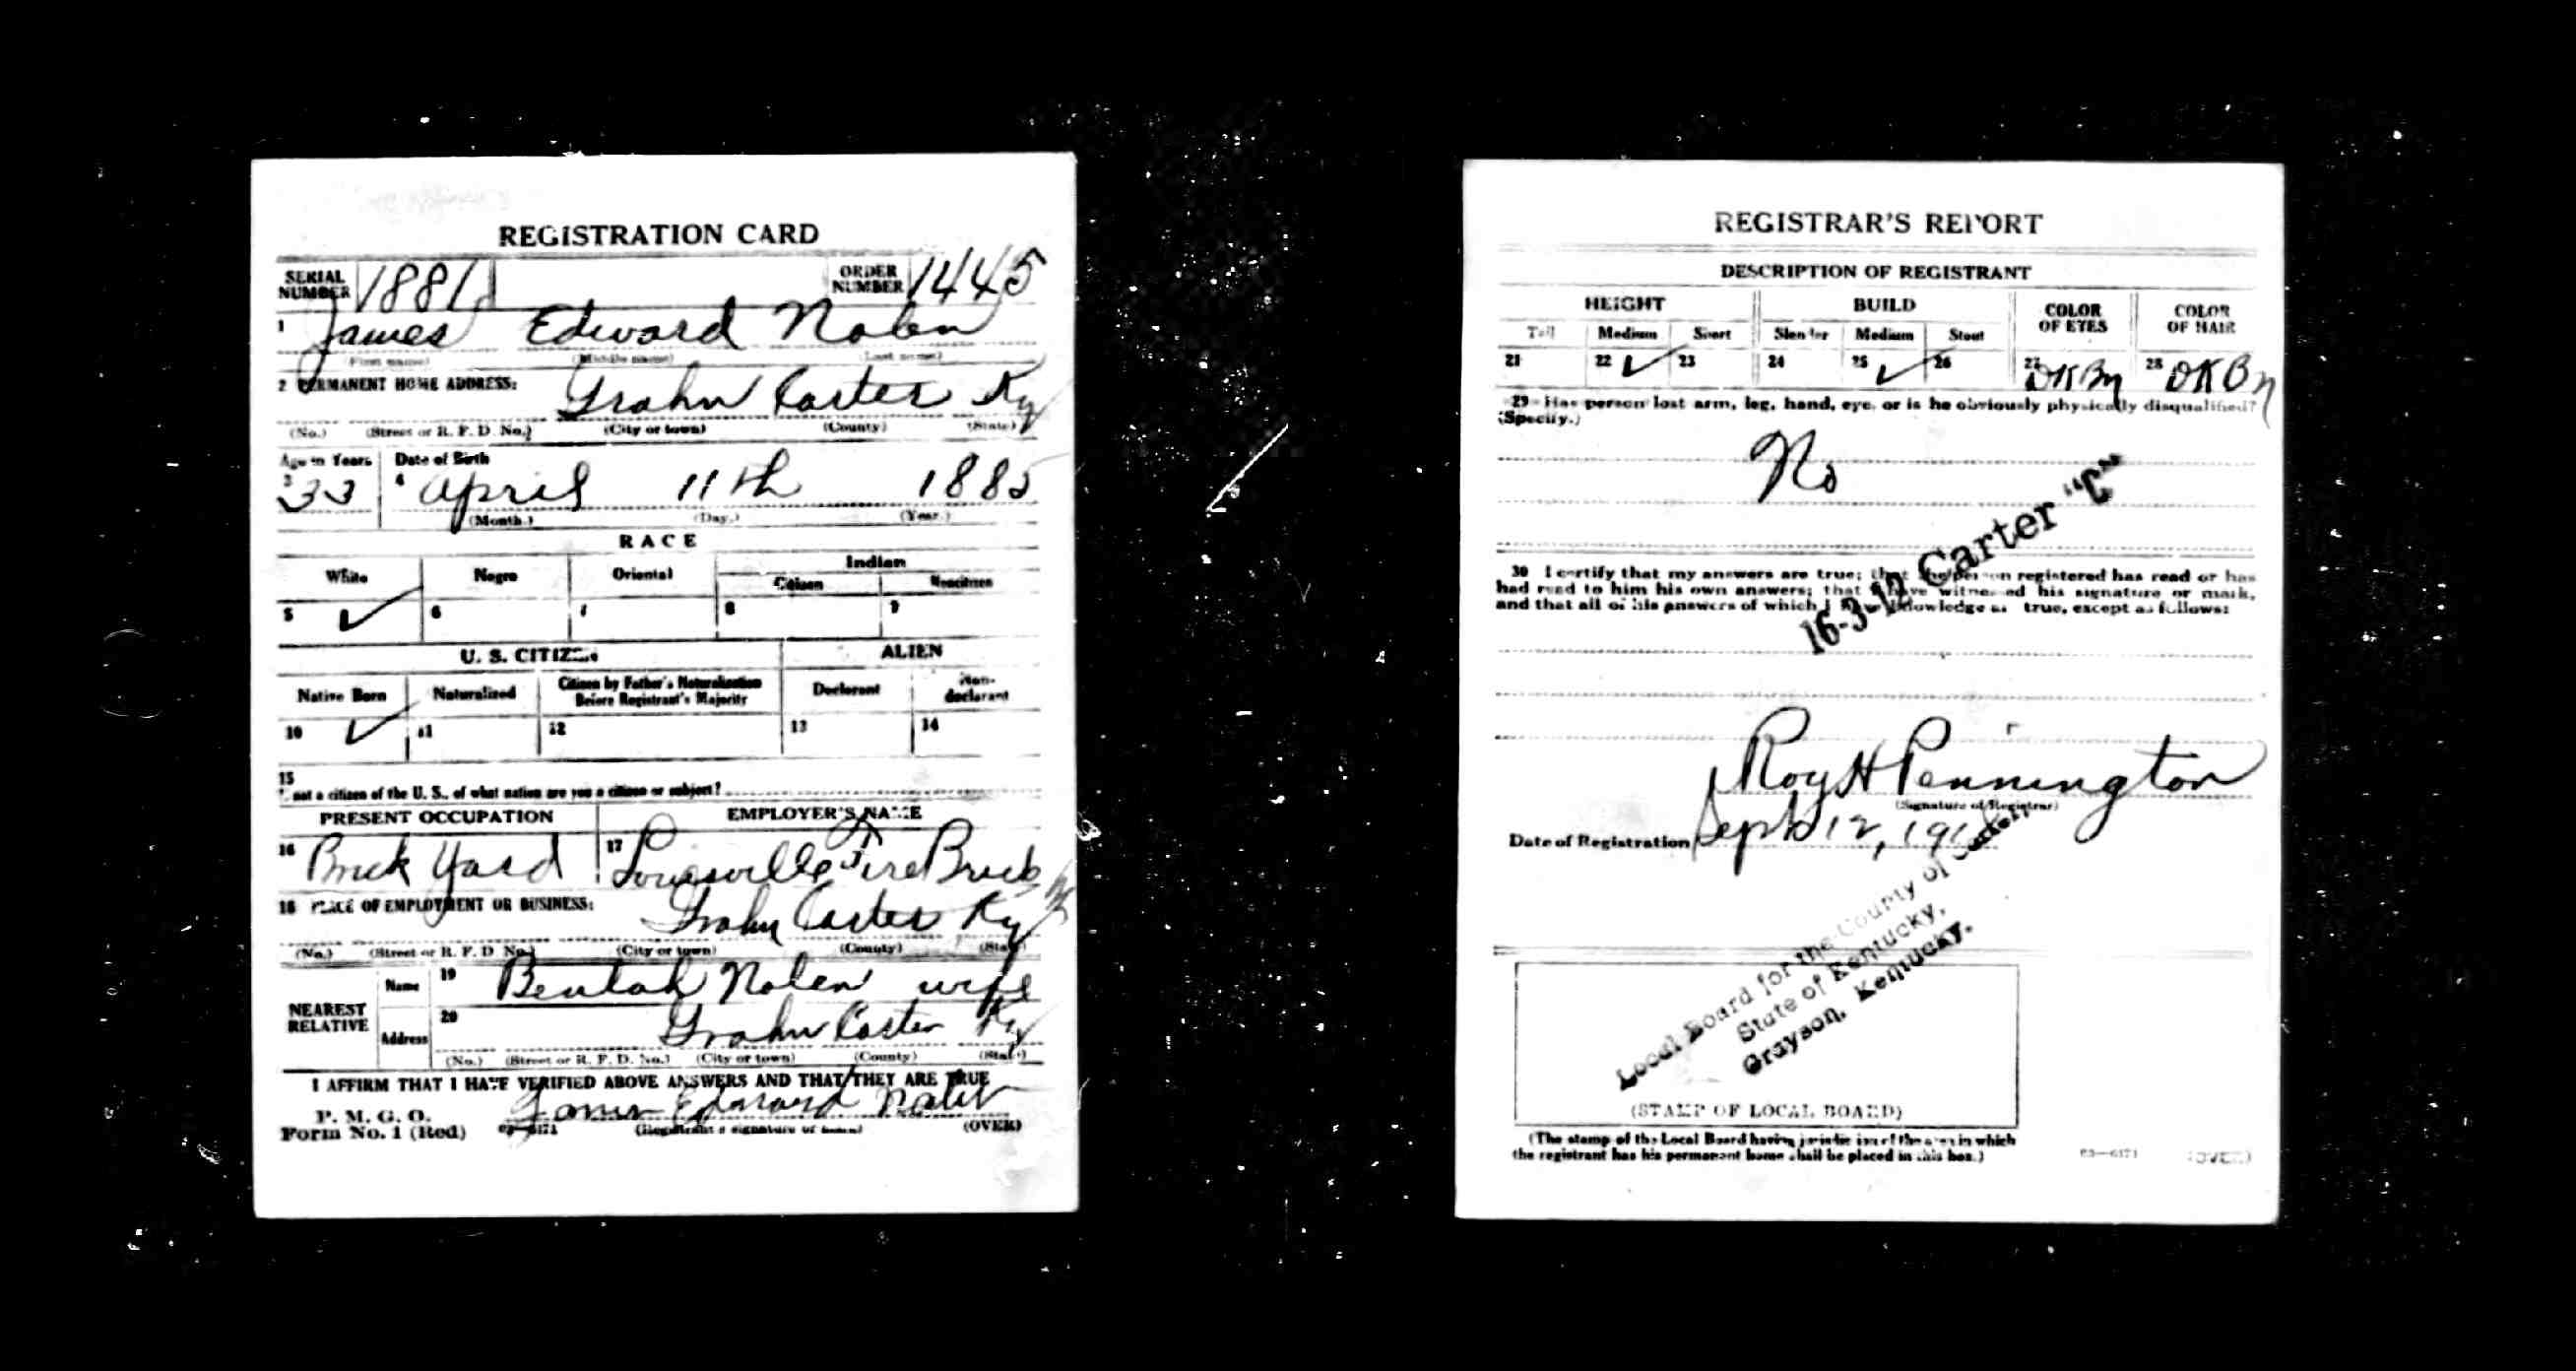 REGISTRATION CARD
SERIAL NUMBER 1881 ORDER NUMBER 1445
1 James Edward Nolen
(First name) (Middle name) (Last name)
2 PERMANENT HOME ADDRESS: Grahn Carter Ky
(No.) (Street or R. F. D. No.) (City or town) (County) (State)
Age in Years Date of Birth
3 33 4 April 11th 1885
(Month.) (Day.) (Year.)
RACE
White Negro Oriental Indian
Citizen Noncitizen
5 ✓ 6 7 8 9
U. S. CITIZEN ALIEN
Native Born Naturalized Citizen by Father's Naturalization Before Registrant's Majority Declarant Non-declarant
10 ✓ 11 12 13 14
15
If not a citizen of the U. S., of what nation are you a citizen or subject?
PRESENT OCCUPATION EMPLOYER'S NAME
16 Brick Yard 17 Louisville Fire Brick
18 PLACE OF EMPLOYMENT OR BUSINESS: Grahn Carter Ky
(No.) (Street or R. F. D. No.) (City or town) (County) (State)
NEAREST RELATIVE Name 19 Beulah Nolen wife
Address 20 Grahn Carter Ky
(No.) (Street or R. F. D. No.) (City or town) (County) (State)
I AFFIRM THAT I HAVE VERIFIED ABOVE ANSWERS AND THAT THEY ARE TRUE
P. M. G. O.
Form No. 1 (Red) 03—6171 James Edward Nolen
(Registrant's signature or mark) (OVER)
REGISTRAR'S REPORT
DESCRIPTION OF REGISTRANT
HEIGHT BUILD COLOR OF EYES COLOR OF HAIR
Tall Medium Short Slender Medium Stout
21 22 ✓ 23 24 25 ✓ 26 27 DK Bn 28 DK Bn
29 Has person lost arm, leg, hand, eye, or is he obviously physically disqualified?
(Specify.)
No
16-3-12 Carter "C"
30 I certify that my answers are true; that the person registered has read or has
had read to him his own answers; that I have witnessed his signature or mark,
and that all of his answers of which I have knowledge are true, except as follows:
Roy H Pennington
(Signature of Registrar)
Date of Registration Sept 12, 1918
Local Board for the County of Carter,
State of Kentucky,
Grayson, Kentucky.
(STAMP OF LOCAL BOARD)
(The stamp of the Local Board having jurisdiction of the area in which
the registrant has his permanent home shall be placed in this box.)
03—6171 (OVER)